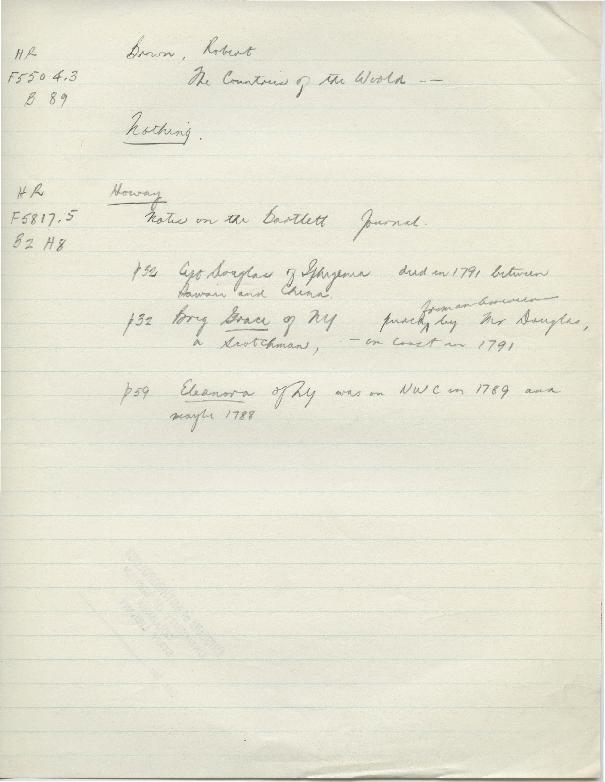 HR
Brown, Robert
F5504.3
The Countries of the World --
B 89
Nothing.
HR
Howay
F5817.5
Notes on the Bartlett Journal.
B2 H8
p32 Capt Douglas of Iphigenia died in 1791 between
Hawaii and China.
p32 Brig Grace of NY by Mr Douglas,
a Scotchman, - on coast in 1791
p59 Eleanora of NY was on NWC in 1789 and
maybe 1788